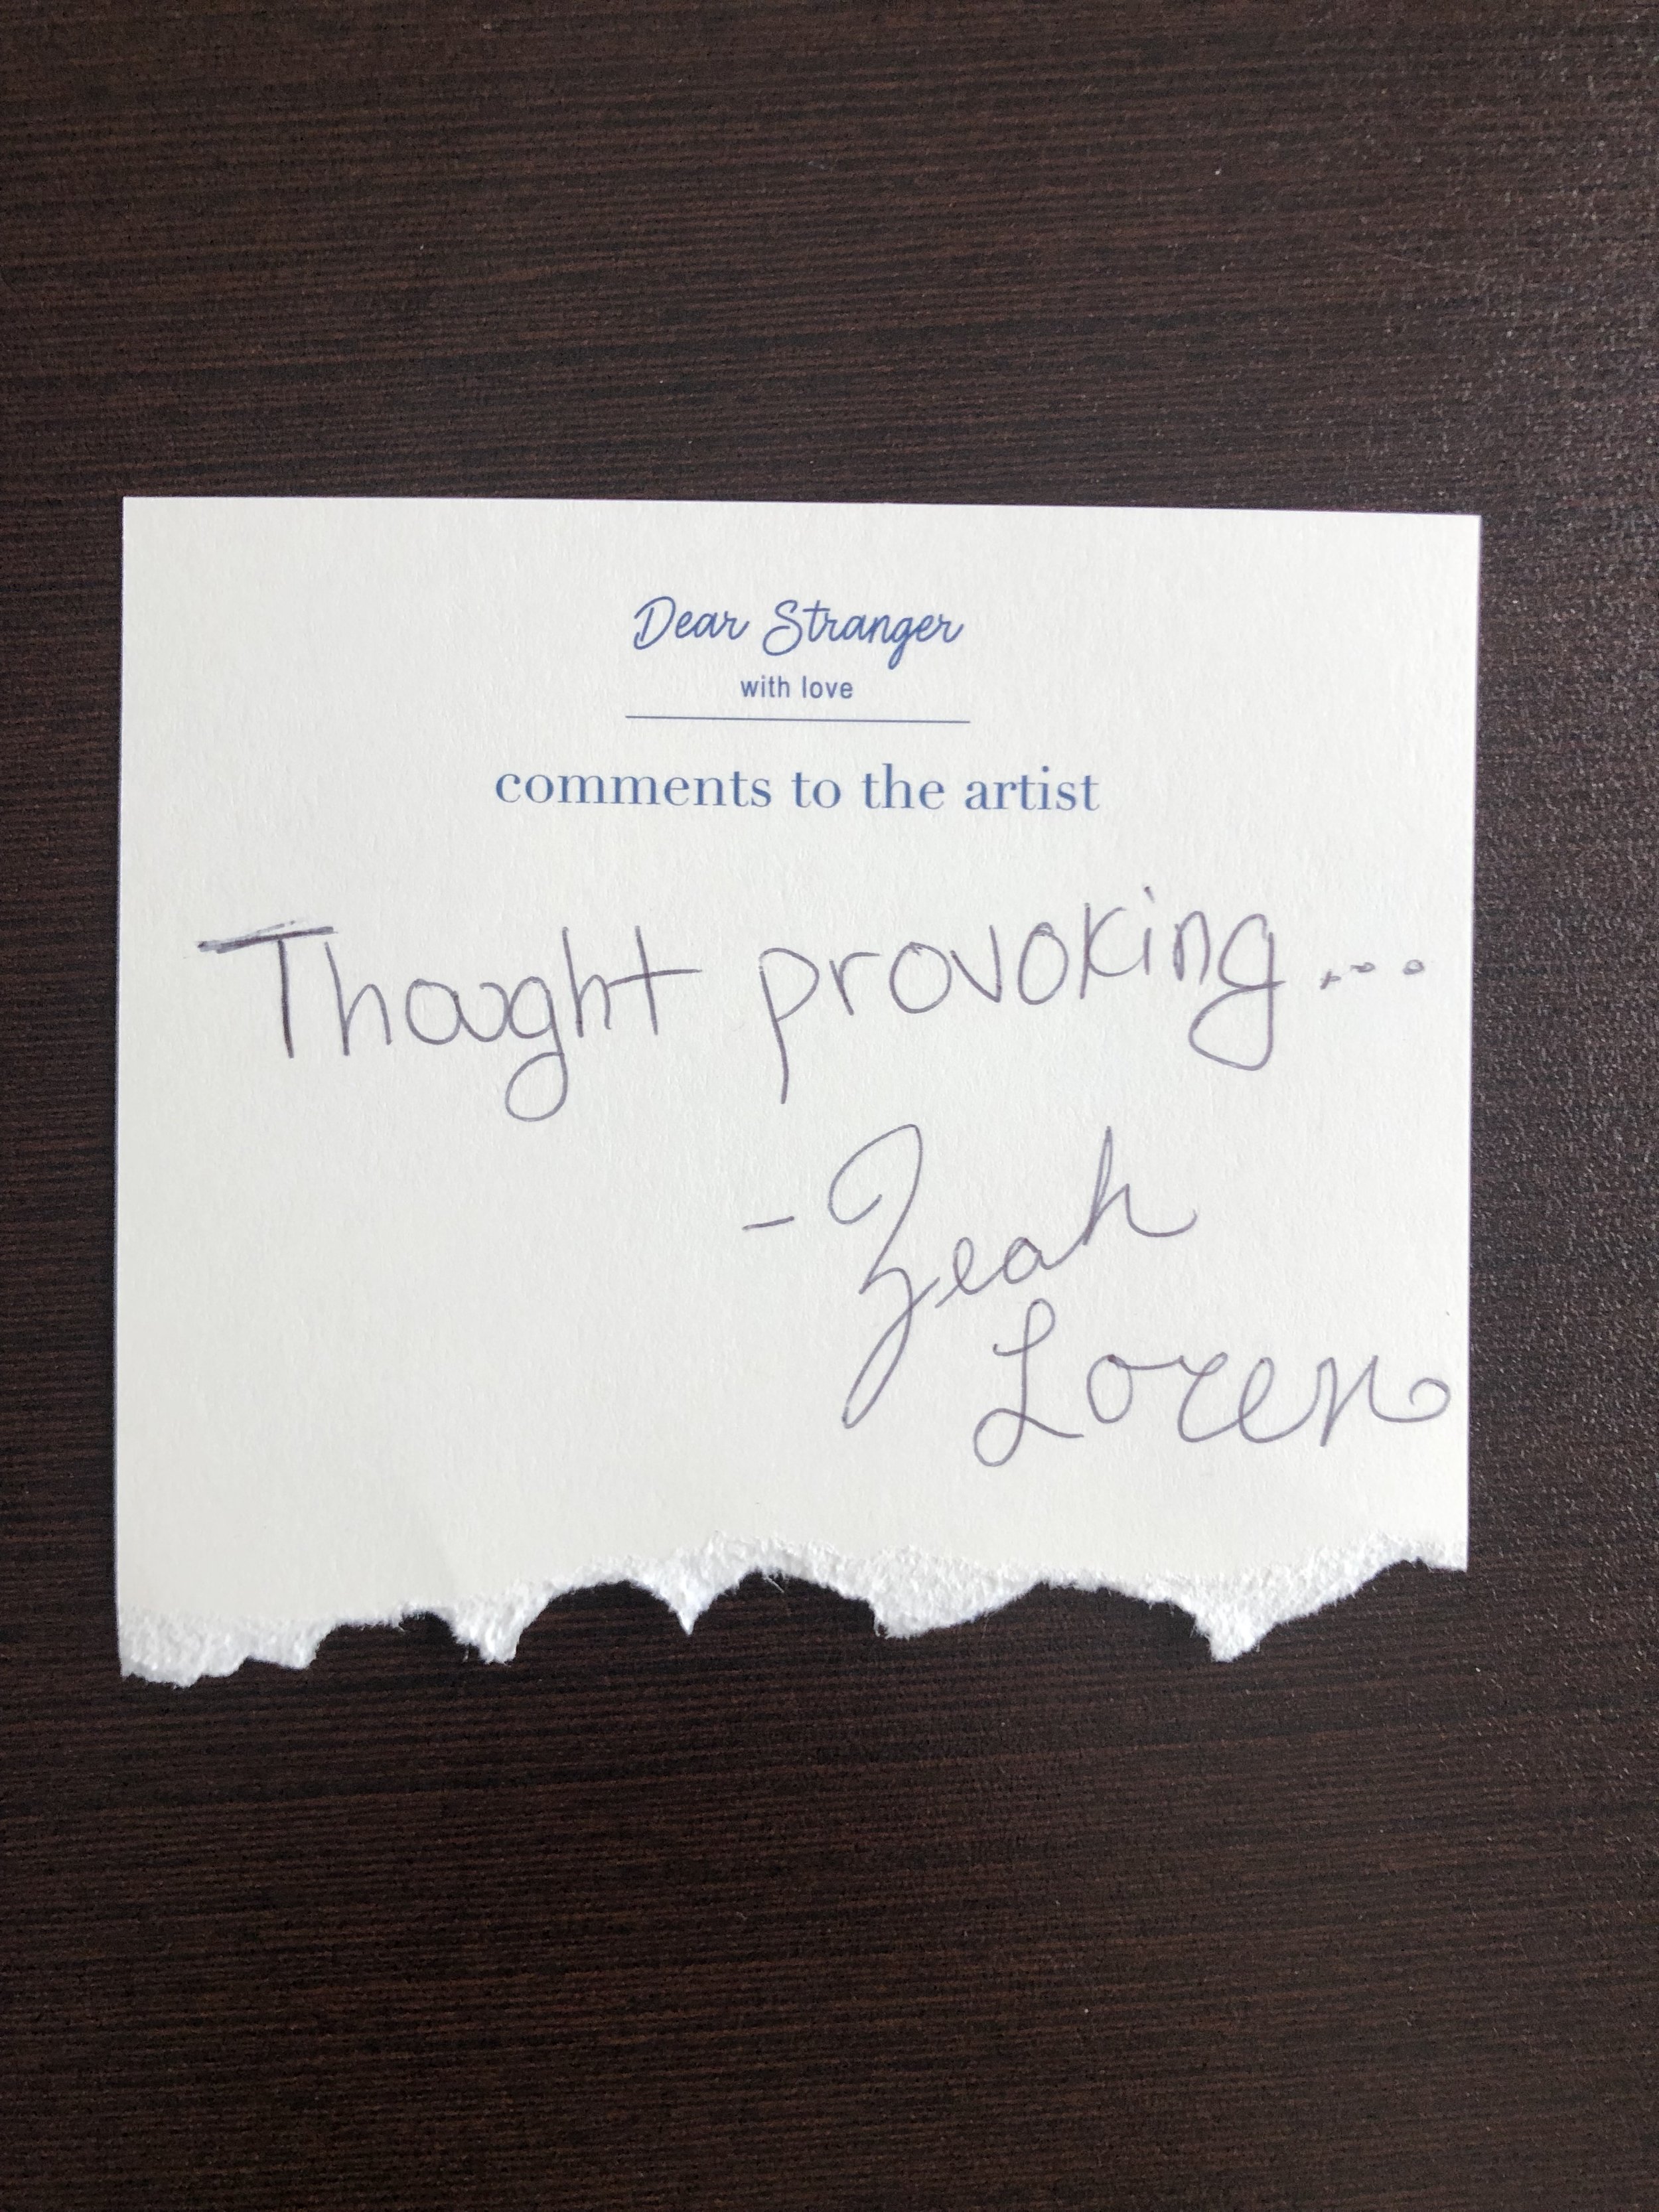 Dear Stranger
with love
comments to the artist
Thought provoking...
- Zeah
Loren